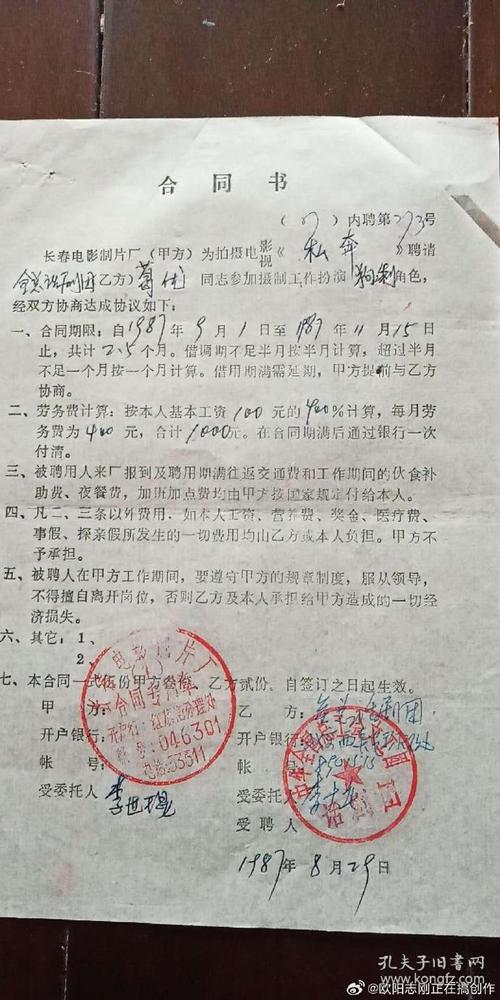 合同书
(87)内聘第273号
长春电影制片厂(甲方)为拍摄电影视《私奔》聘请
全总话剧团(乙方)葛优同志参加摄制工作扮演狗剩角色,
经双方协商达成协议如下:
一、合同期限:自1987年9月1日至1987年11月15日
止,共计2.5个月。借调期不足半月按半月计算,超过半月
不足一个月按一个月计算。借用期满需延期,甲方提前与乙方
协商。
二、劳务费计算:按本人基本工资100元的400%计算,每月劳
务费为400元,合计1000元。在合同期满后通过银行一次
付清。
三、被聘用人来厂报到及聘用期满往返交通费和工作期间的伙食补
助费、夜餐费,加班加点费均由甲方按国家规定付给本人。
四、凡二、三条以外费用,如本人工资、营养费、奖金、医疗费、
事假、探亲假所发生的一切费用均由乙方或本人负担。甲方不
予承担。
五、被聘人在甲方工作期间,要遵守甲方的规章制度,服从领导,
不得擅自离开岗位,否则乙方及本人承担给甲方造成的一切经
济损失。
六、其它:1、
2、
七、本合同一式伍份甲方叁份,乙方贰份,自签订之日起生效。
甲方: 乙方:
开户银行: 开户银行:
帐号: 帐号:
受委托人 李世 受委托人 李
受聘人
电影制片厂
合同专用章
开户行:
帐号:046301
电话:53511
话剧团
1987年8月29日
孔夫子旧书网
www.kongfz.com
@欧阳志刚正在搞创作